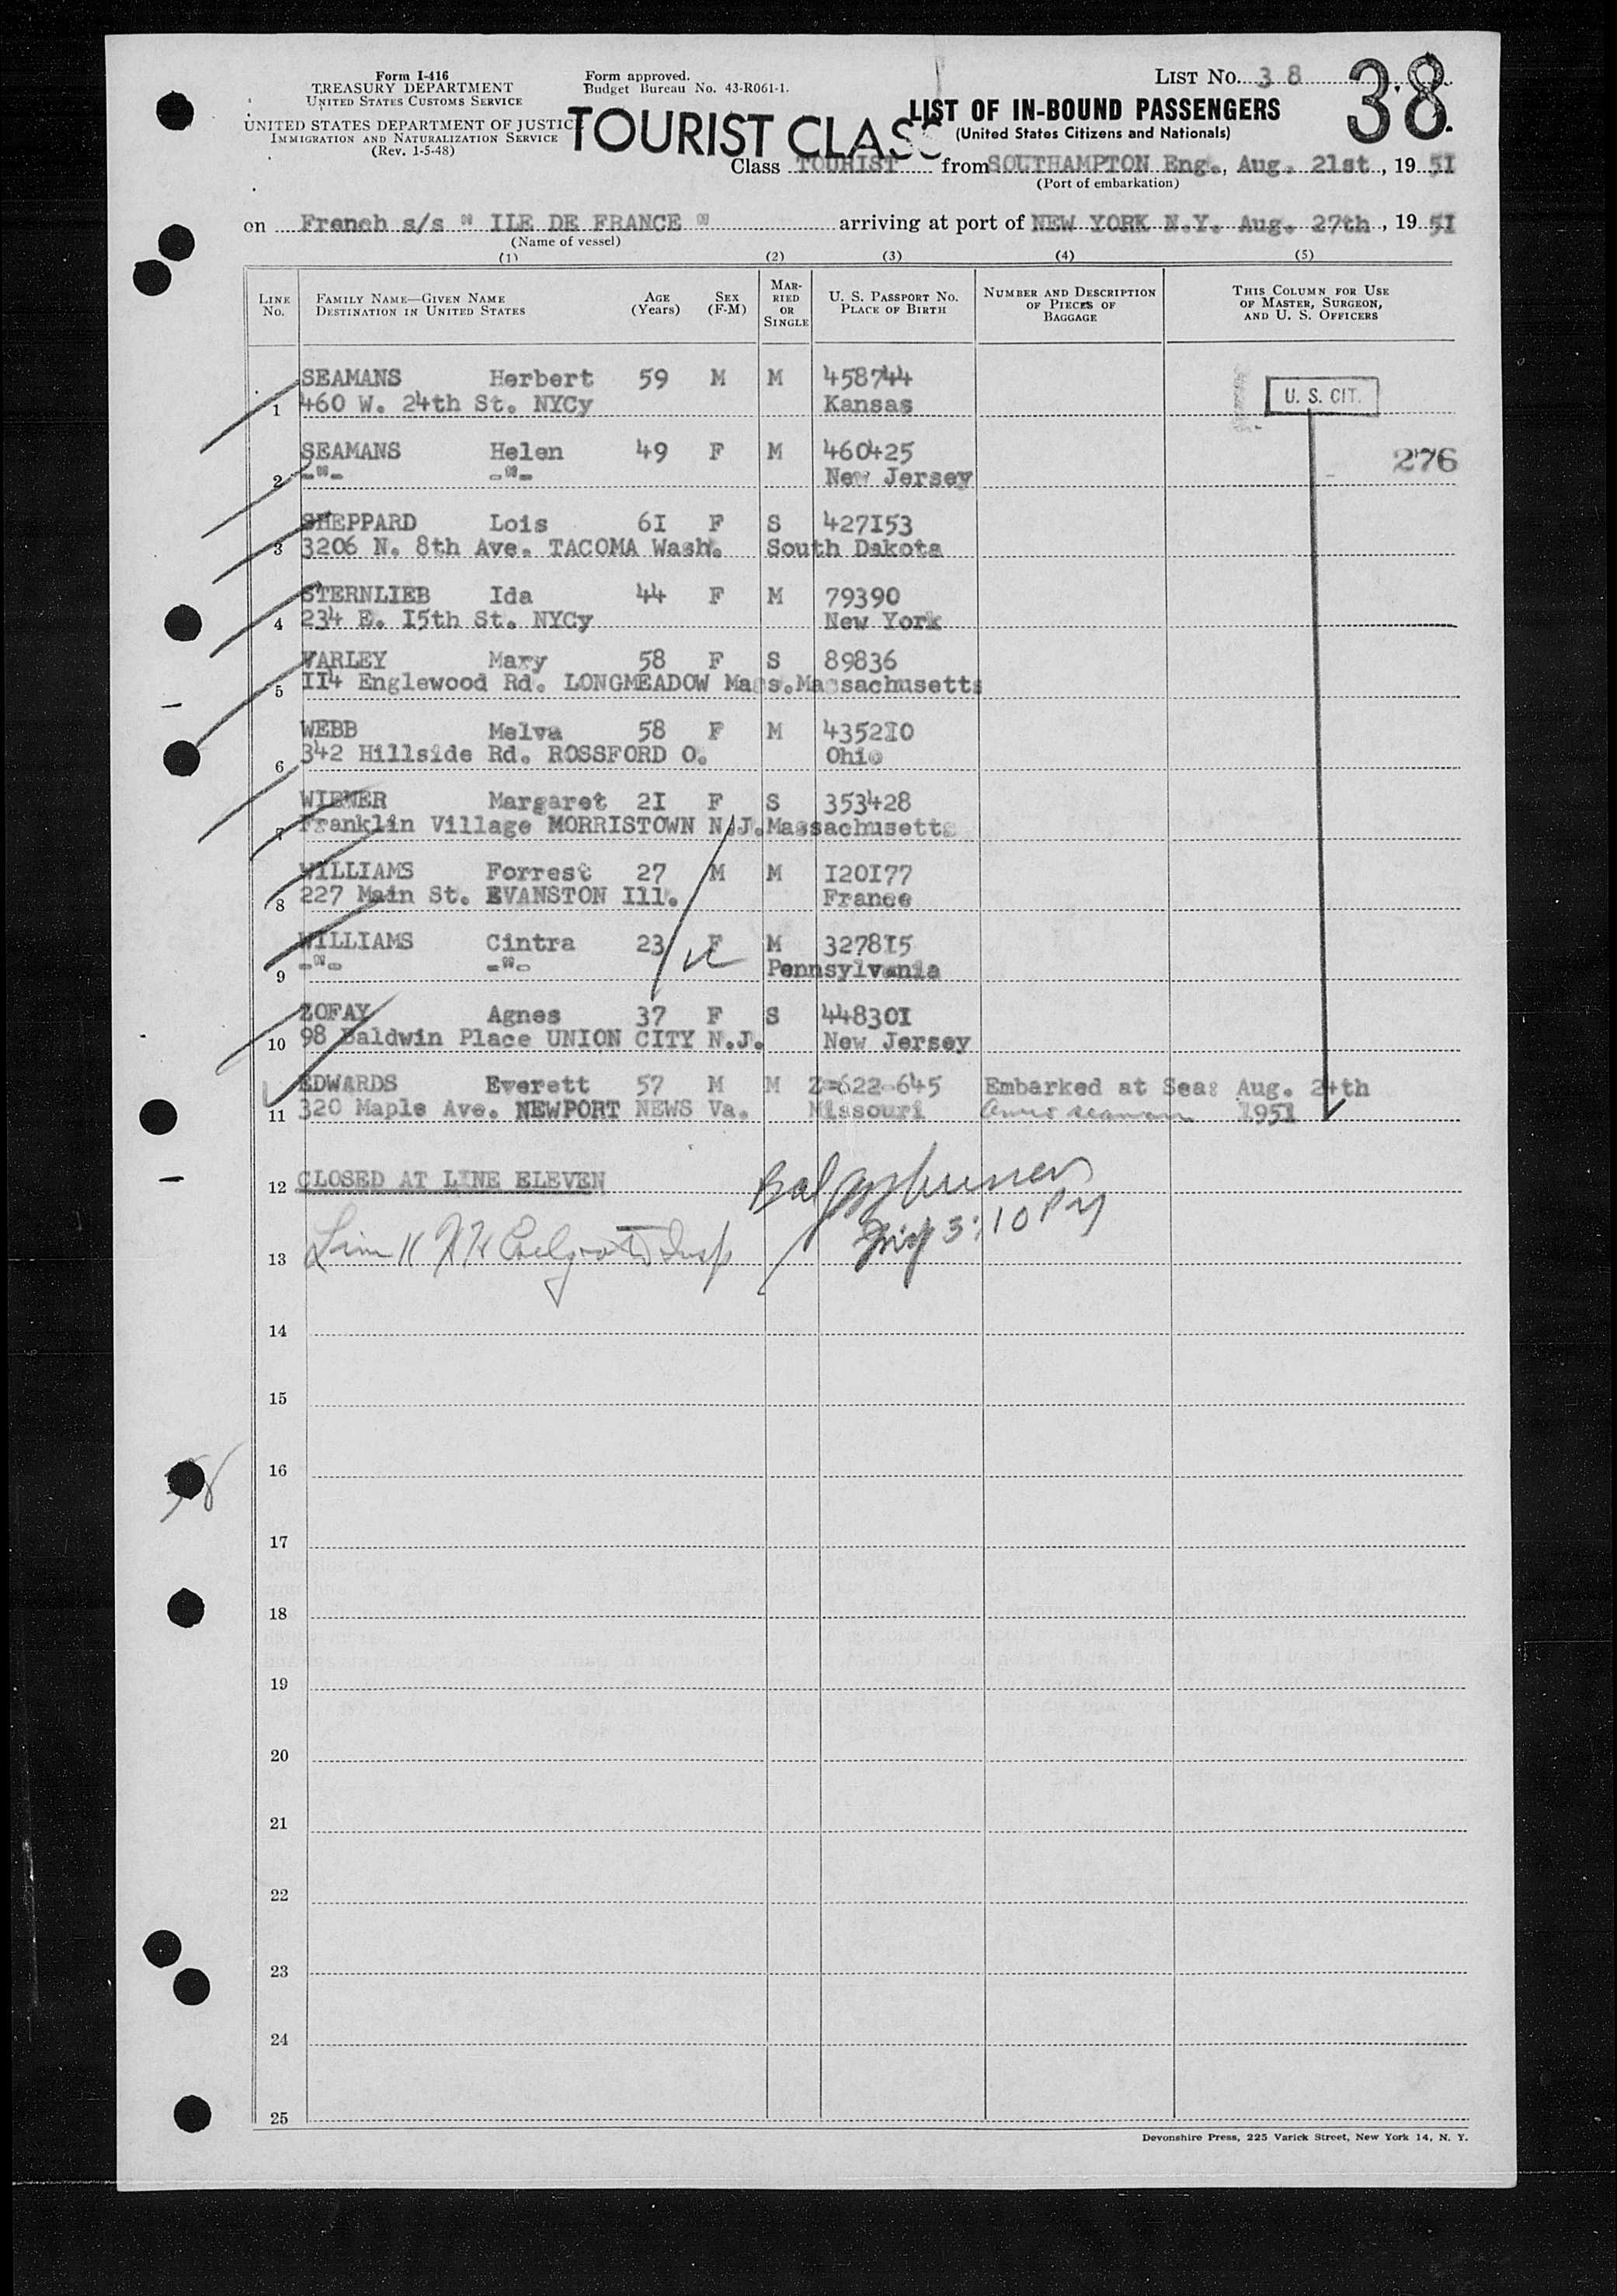 Form I-416
TREASURY DEPARTMENT
UNITED STATES CUSTOMS SERVICE
UNITED STATES DEPARTMENT OF JUSTICE
IMMIGRATION AND NATURALIZATION SERVICE
(Rev. 1-5-48)
Form approved.
Budget Bureau No. 43-R061-1.
LIST NO. 38
38
TOURIST CLASS
LIST OF IN-BOUND PASSENGERS
(United States Citizens and Nationals)
Class TOURIST from SOUTHAMPTON Eng., Aug. 21st, 1951
(Port of embarkation)
on French s/s " ILE DE FRANCE " arriving at port of NEW YORK N.Y. Aug. 27th, 1951
(Name of vessel)
(1) (2) (3) (4) (5)
LINE NO. FAMILY NAME—GIVEN NAME DESTINATION IN UNITED STATES AGE (Years) SEX (F-M) MARRIED OR SINGLE U. S. PASSPORT NO. PLACE OF BIRTH NUMBER AND DESCRIPTION OF PIECES OF BAGGAGE THIS COLUMN FOR USE OF MASTER, SURGEON, AND U. S. OFFICERS
SEAMANS Herbert 59 M M 458744
1 460 W. 24th St. NYCy Kansas U. S. CIT.
SEAMANS Helen 49 F M 460425 276
2 -"- -"- New Jersey
SHEPPARD Lois 6I F S 427I53
3 3206 N. 8th Ave. TACOMA Wash. South Dakota
STERNLIEB Ida 44 F M 79390
4 234 E. I5th St. NYCy New York
VARLEY Mary 58 F S 89836
5 II4 Englewood Rd. LONGMEADOW Mass. Massachusetts
WEBB Melva 58 F M 4352I0
6 342 Hillside Rd. ROSSFORD O. Ohio
WIENER Margaret 2I F S 353428
7 Franklin Village MORRISTOWN N.J. Massachusetts
WILLIAMS Forrest 27 M M I20I77
8 227 Main St. EVANSTON Ill. France
WILLIAMS Cintra 23 F M 3278I5
9 -"- -"- Pennsylvania
ZOFAY Agnes 37 F S 44830I
10 98 Baldwin Place UNION CITY N.J. New Jersey
EDWARDS Everett 57 M M Z=622-645 Embarked at Sea: Aug. 24th
11 320 Maple Ave. NEWPORT NEWS Va. Missouri Amer seaman 1951
12 CLOSED AT LINE ELEVEN
3:10 PM
13
14
15
16
17
18
19
20
21
22
23
24
25
Devonshire Press, 225 Varick Street, New York 14, N. Y.